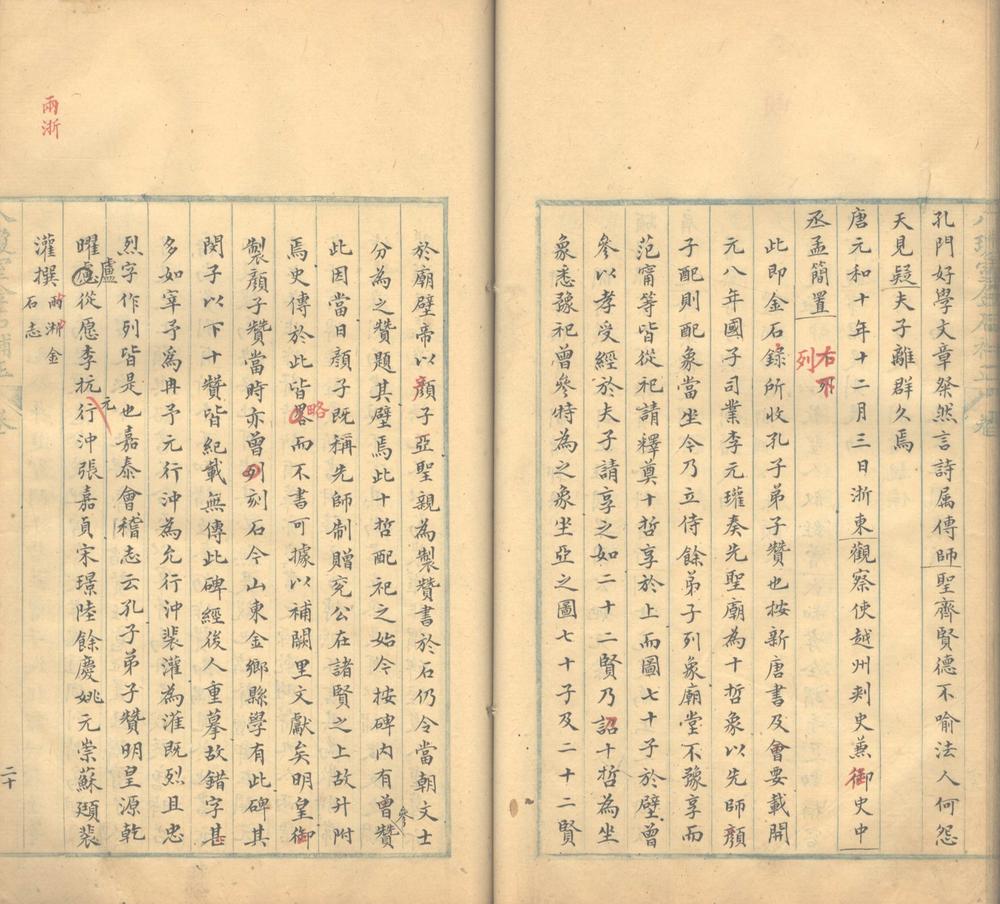 孔門好學文章粲然言詩属傳師聖齊賢德不喻法人何怨
天見疑夫子離群久焉
唐元和十年十二月三日浙東觀察使越州刺史兼御史中
丞孟簡置
右刋
列
此即金石錄所收孔子弟子贊也按新唐書及會要載開
元八年國子司業李元瓘奏先聖廟為十哲象以先師顔
子配則配象當坐今乃立侍餘弟子列象廟堂不豫享而
范甯等皆從祀請釋奠十哲享於上而圖七十子於壁曾
參以孝受經於夫子請享之如二十二賢乃詔十哲為坐
象悉豫祀曾參特為之象坐亞之圖七十子及二十二賢
於廟壁帝以顔子亞聖親為製贊書於石仍令當朝文士
分為之贊題其壁焉此十哲配祀之始今按碑內有曾參贊
此因當日顔子既稱先師制贈兖公在諸賢之上故升附
焉史傳於此皆畧略而不書可據以補闕里文獻矣明皇御
製顔子贊當時亦曾列刻石今山東金鄉縣學有此碑其
閔子以下十贊皆紀載無傳此碑經後人重摹故錯字甚
多如宰予寫冉予元行沖為允行沖裴灌為漼既烈且忠
烈字作列皆是也嘉泰會稽志云孔子弟子贊明皇源乾
曜盧從愿李抗元行沖張嘉貞宋璟陸餘慶姚元崇蘇頲裴
灌撰兩浙金石志
兩浙
二十